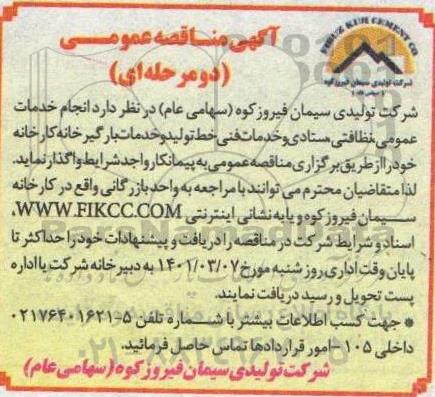 آگهی مناقصه عمومی
(دو مرحله‌ای)
FIRUZ KUH CEMENT CO
شرکت تولیدی سیمان فیروزکوه
شرکت تولیدی سیمان فیروزکوه (سهامی عام) در نظر دارد انجام خدمات
عمومی،نظافتی،ستادی و خدمات فنی خط تولید و خدمات بارگیرخانه کارخانه
خود را از طریق برگزاری مناقصه عمومی به پیمانکار واجد شرایط واگذار نماید.
لذا متقاضیان محترم می توانند با مراجعه به واحد بازرگانی واقع در کارخانه
سیمان فیروز کوه و یا به نشانی اینترنتی WWW.FIKCC.COM،
اسناد و شرایط شرکت در مناقصه را دریافت و پیشنهادات خود را حداکثر تا
پایان وقت اداری روز شنبه مورخ ۱۴۰۱/۰۳/۰۷ به دبیرخانه شرکت یا اداره
پست تحویل و رسید دریافت نمایند.
* جهت کسب اطلاعات بیشتر با شماره تلفن ۵-۰۲۱۷۶۴۰۱۶۲۱
داخلی ۱۰۵-امور قراردادها تماس حاصل فرمائید.
شرکت تولیدی سیمان فیروز کوه (سهامی عام)